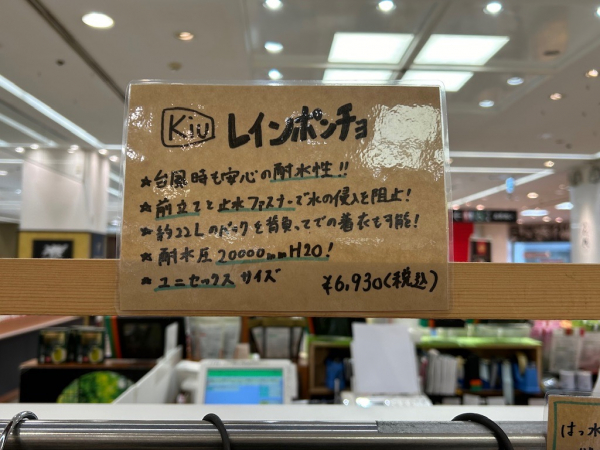 Kiu レインポンチョ
★台風時も安心の耐水性!!
★前立てと止水ファスナーで水の侵入を阻止!
★約22Lのバックを背負ってでの着衣も可能!
★耐水圧20000mmH2O!
★ユニセックスサイズ ¥6,930(税込)
はっ水